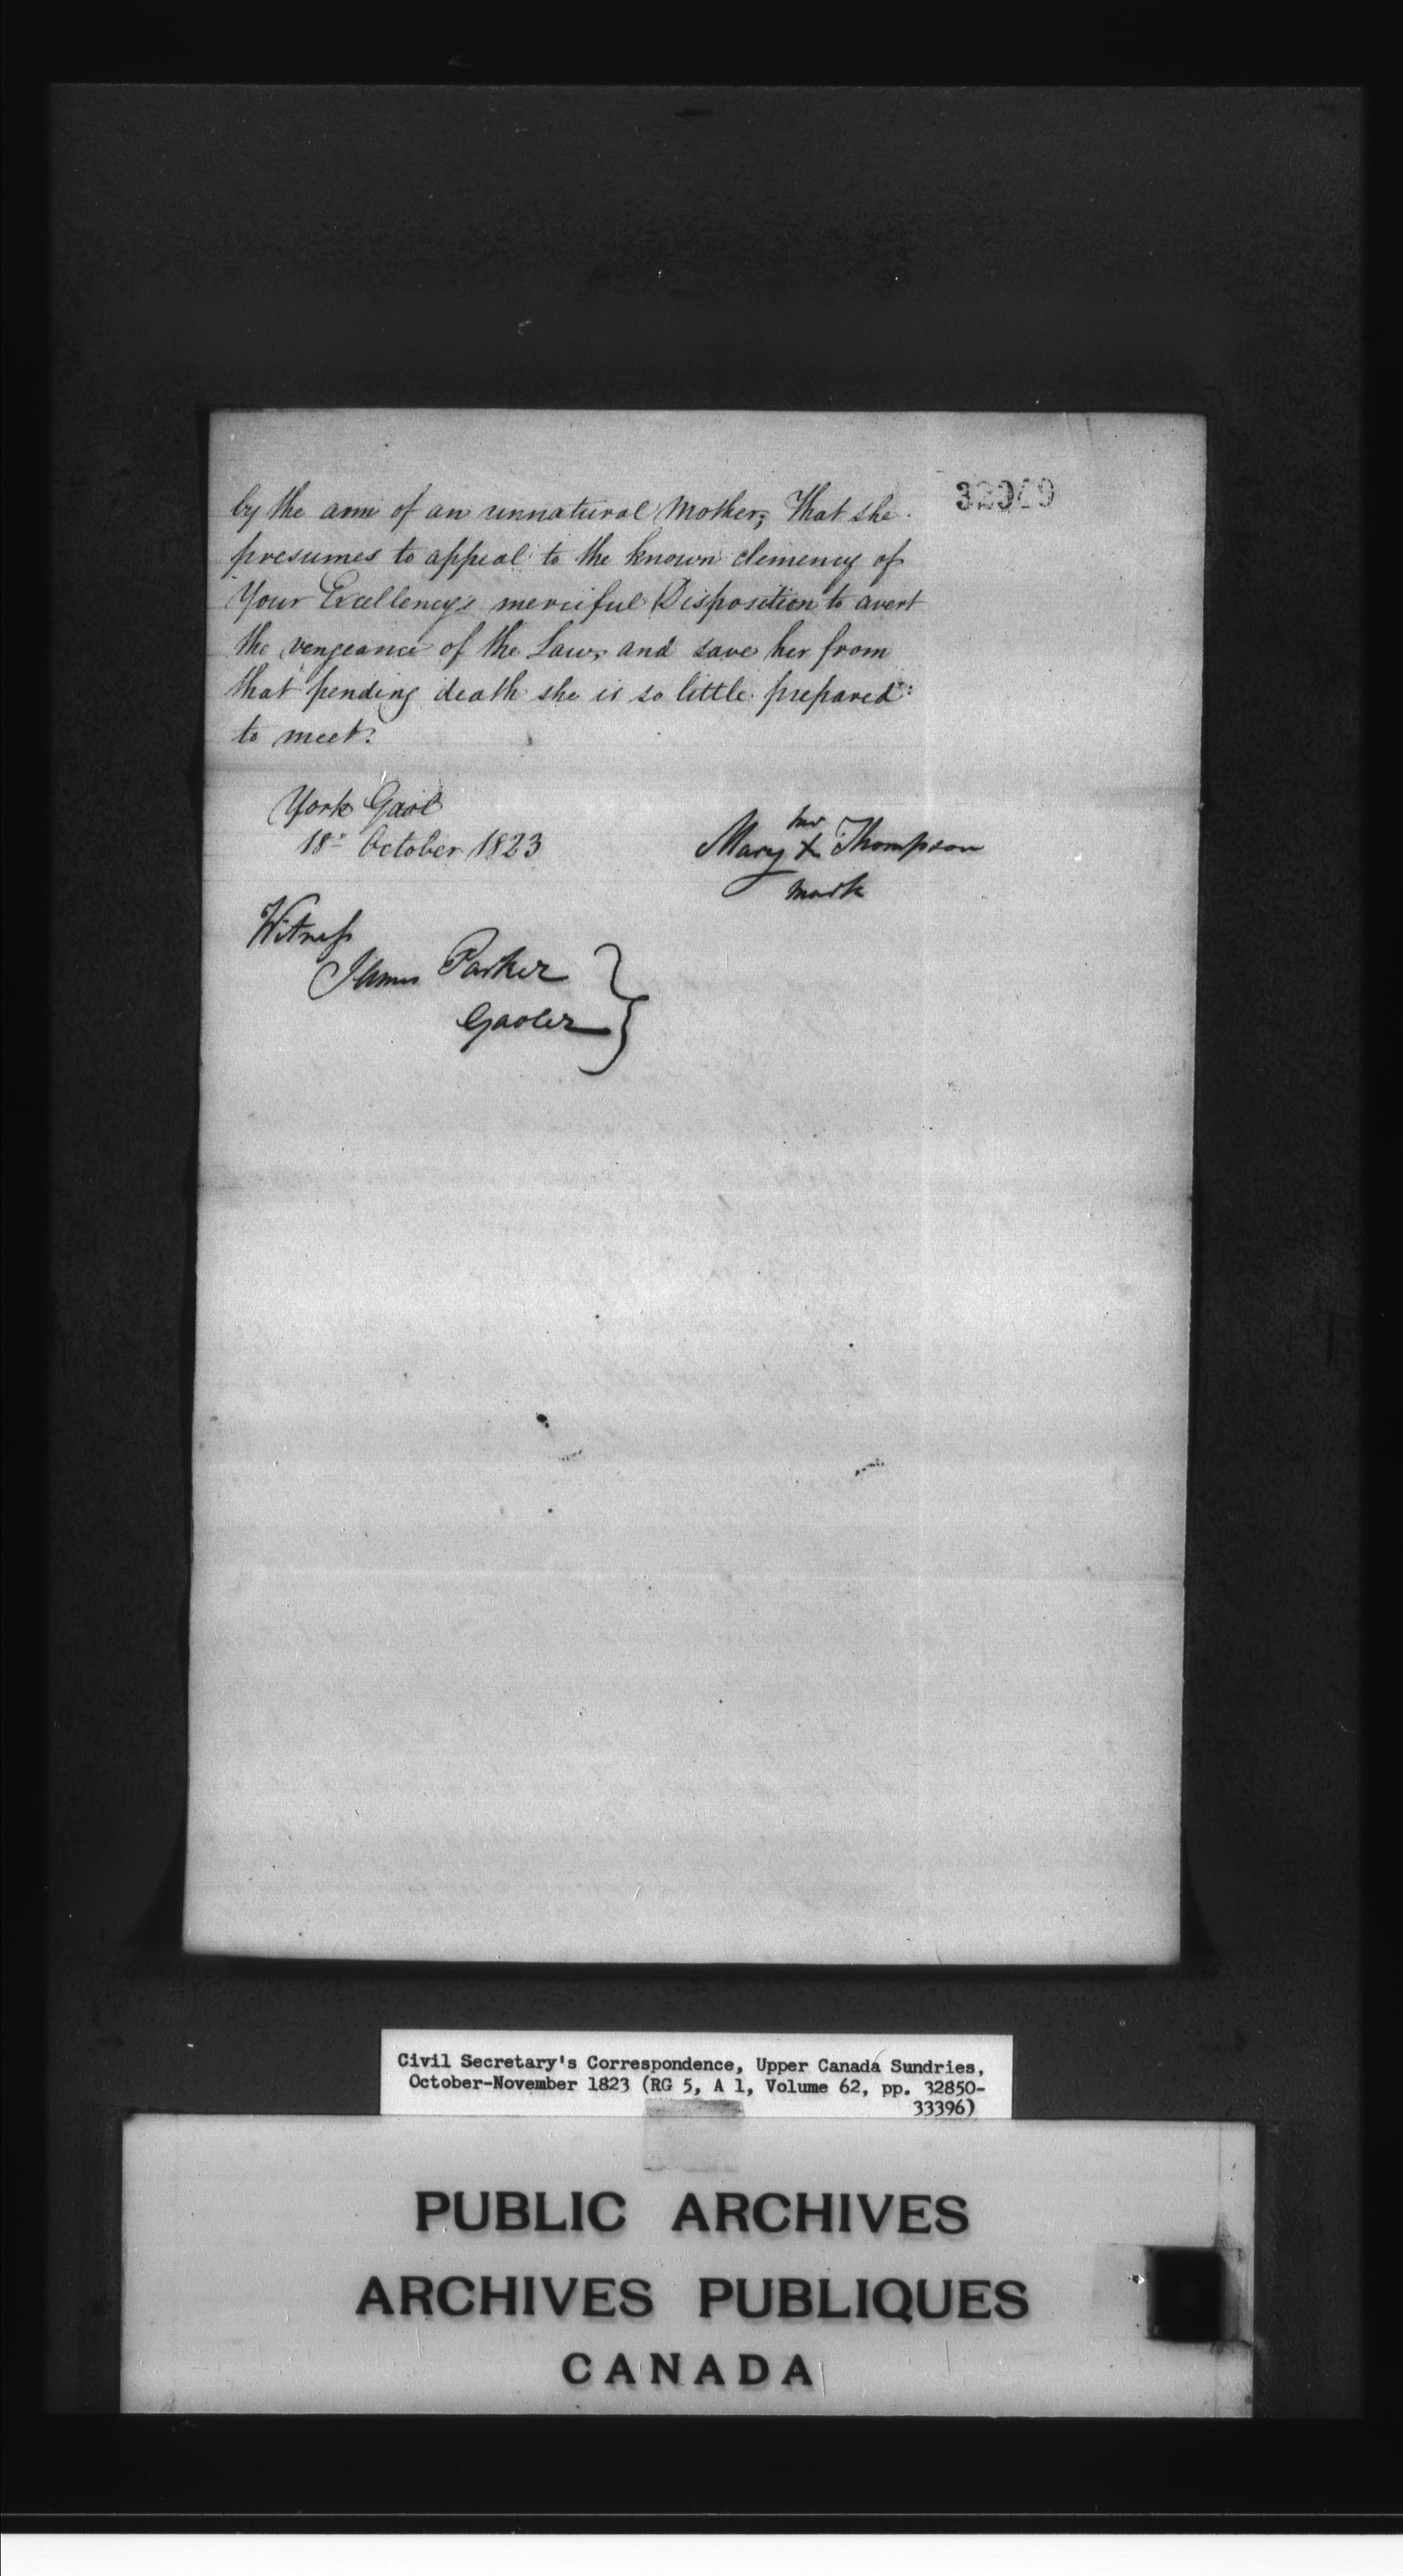 32949
by the arm of an unnatural Mother; That she
presumes to appeal to the known clemency of
Your Excellency's merciful Disposition to avert
the vengeance of the Law, and save her from
that pending death she is so little prepared
to meet.
York Gaol
18th October 1823
her
Mary X Thompson
mark
Witness
James Parker
Gaoler
Civil Secretary's Correspondence, Upper Canada Sundries,
October-November 1823 (RG 5, A 1, Volume 62, pp. 32850-
33396)
PUBLIC ARCHIVES
ARCHIVES PUBLIQUES
CANADA